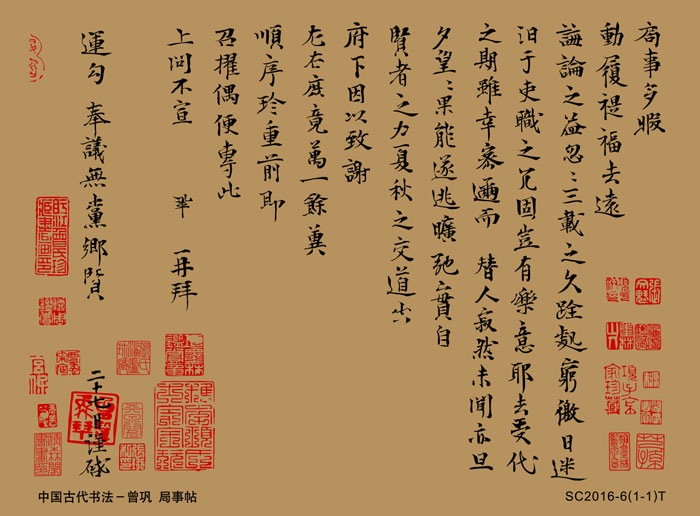 局事多暇
動履禔福去遠
誨論之益忽〻三載之久跧處窮徼日迷
汩于吏職之冗固豈有樂意耶去受代
之期雖幸密邇而替人寂然未聞亦旦
夕望〻果能遂逃曠弛實自
賢者之力夏秋之交道出
府下因以致謝
左右庶竟萬一餘冀
順序珍重前即
召擢偶便專此
上問不宣 鞏 再拜
運勾奉議無黨鄉賢
二十七日謹啟
項子京家珍藏
中国古代书法－曾巩 局事帖
SC2016-6(1-1)T